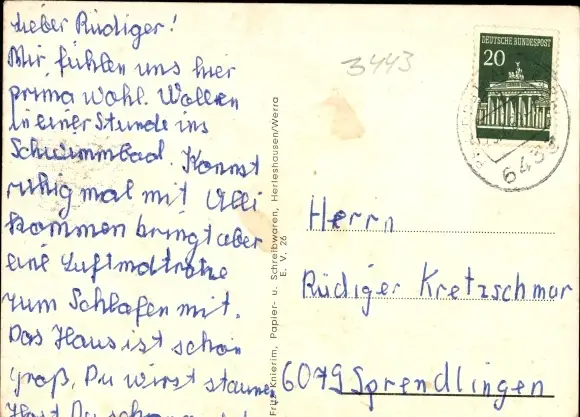 Lieber Rüdiger!
Mir fühlen uns hier
prima wohl. Wollen
in einer Stunde ins
Schwimmbad. Kannst
ruhig mal mit Ulli
kommen bringt aber
eine Luftmatratze
zum Schlafen mit.
Das Haus ist schön
groß. Du wirst staunen
Hast Du schon
3443
Fritz Knierim, Papier- u. Schreibwaren, Herleshausen/Werra
E. V. 26
DEUTSCHE BUNDESPOST
20
643
Herrn
Rüdiger Kretzschmar
6079 Sprendlingen